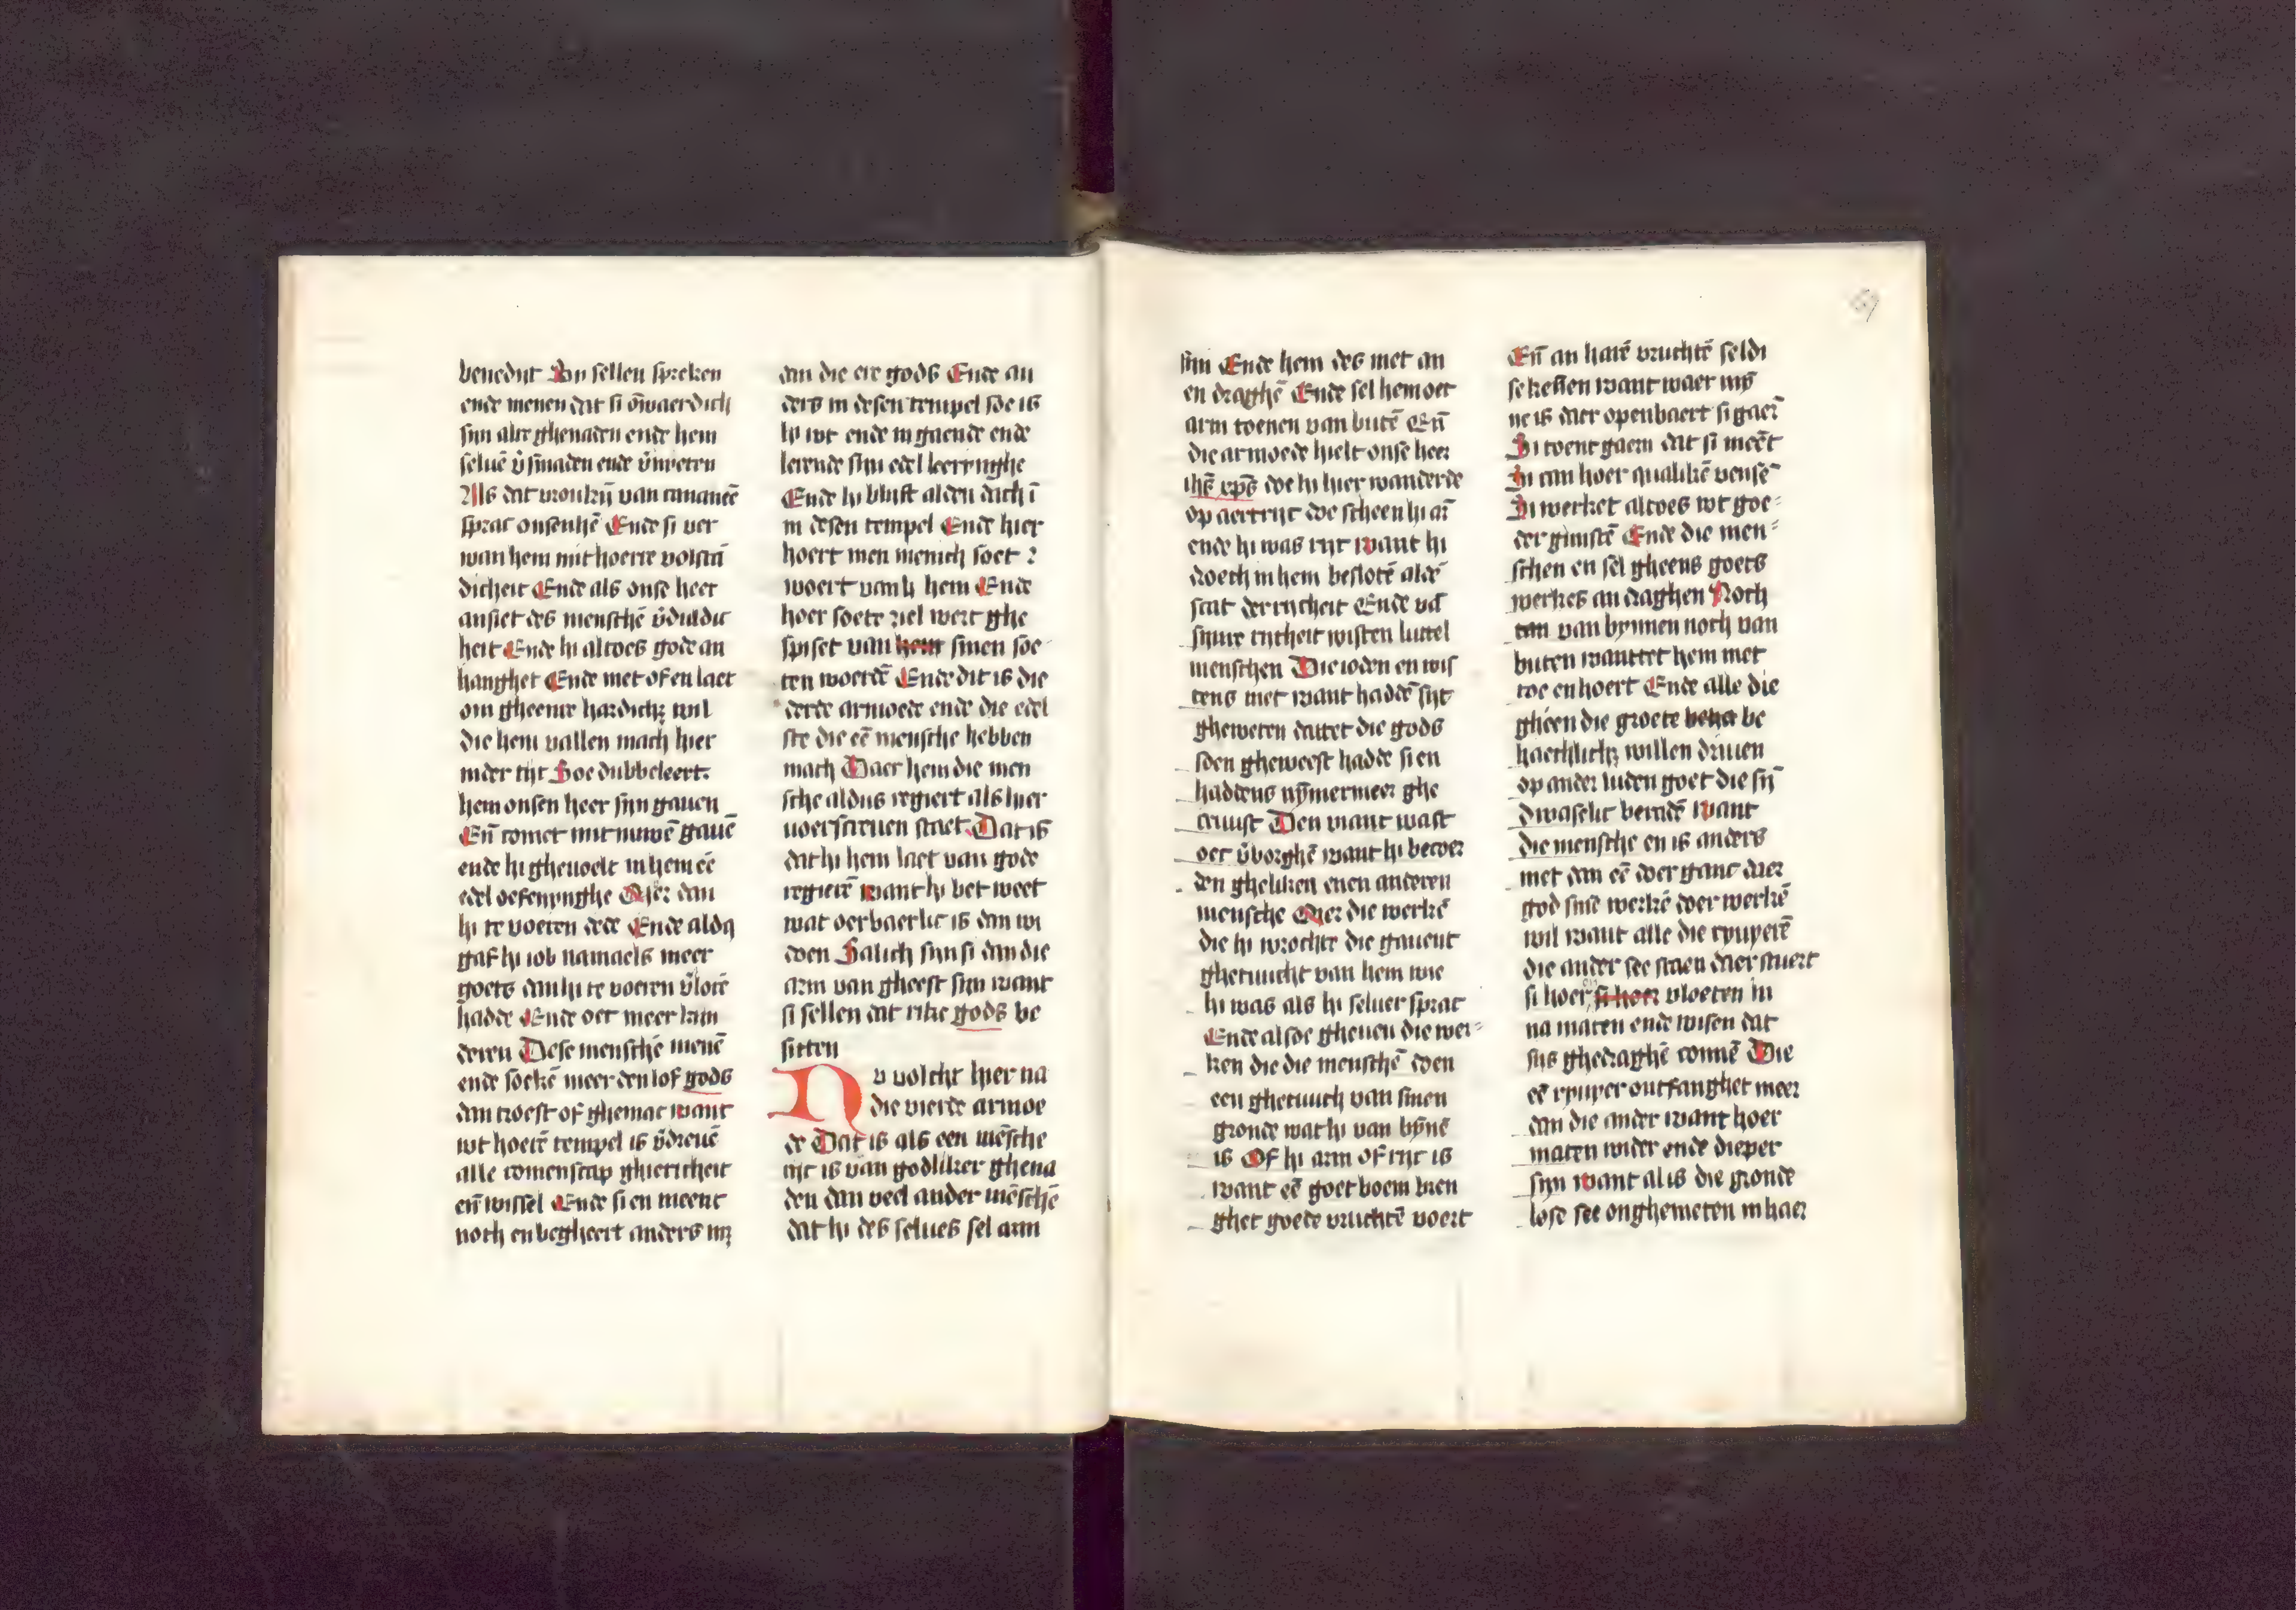 benedijt Mer sellen spreken
ende menen dat si ōwaerdich
sijn alre ghenaden ende hem
seluē v̄smaden ende v̄nyeten
Als dat vroukijn van cananee
sprac onsenhē Ende si ver
wan hem mit hoerre volstā
dicheit Ende als onse heer
ansiet des menschē v̄duldic
heit Ende hi altoes gode an
hanghet Ende niet of en laet
om gheenre hardichz wil
die hem vallen mach hier
inder tijt Soe dubbeleert
hem onsen heer sijn gauen
Eñ comet mit nuwē gauē
ende hi gheuoelt in hem ee
edel oefenynghe Mer dan
hi te voeren dede Ende aldꝰ
gaf hi iob namaels meer
goets dan hi te voeren v̄lorē
hadde Ende oec meer kin
deren Dese menschē menē
ende soekē meer den lof gods
dan troest of ghemac want
wt hoerē tempel is v̄dreuē
alle comenscap ghiericheit
eñ wissel Ende si en meent
noch en begheert anders nz
dan die ere gods Ende an
ders in desen tempel soe is
hi wt ende in gaende ende
lerende sijn edel leerringhe
Ende hi blijft alden dach ī
in desen tempel Ende hier
hoert men menich soet
woert van h hem Ende
hoer soete ziel wert ghe
spiset van hem sinen soe
ten woerdē Ende dit is die
derde armoede ende die edel
ste die eē mensche hebben
mach Daer hem die men
sche aldus regiert als hier
voerscreuen staet Dat is
dat hi hem laet van gode
regierē want hi bet weet
wat oerbaerlic is dan wi
doen Salich sijn si dan die
arm van gheest sijn want
si sellen dat rike gods be
sitten
Nv volcht hier na
die vierde armoe
de Dat is als een mēsche
ric is van godliker ghena
den dan veel ander mēschē
dat hi des selues sel arm
sijn Ende hem des niet an
en draghē Ende sel hem oec
arm toenen van butē Eñ
die armoede hielt onse heer
ihē xp̄s doe hi hier wanderde
op aertrijc doe scheen hi arm
ende hi was rijc want hi
droech in hem beslotē aldē
scat der rijcheit Ende vā
sijnre rijcheit wisten luttel
menschen Die ioden en wis
tens niet want haddē sijt
gheweten dattet die gods
soen gheweest hadde si en
haddens nȳmermeer ghe
cruust Den viant wast
oec v̄borghē want hi becoer
den gheliken enen anderen
mensche Mer die werkē
die hi wrochte die gauent
ghetuucht van hem wie
hi was als hi seluer sprac
Ende alsoe gheuen die wer
ken die die menschē doen
een ghetuuch van sinen
gronde wat hi van bȳnē
is Of hi arm of rijc is
want eē goet boem bren
ghet goede vruchtē voert
Eñ an harē vruchtē seldi
se kennen want waer mȳ
ne is daer openbaert si gaer
Si toent gaern dat si meēt
Si can hoer qualikē veinsē
Si werket altoes wt goe
der ginstē Ende die men
schen en sel gheens goets
werkes an draghen Noch
van bynnen noch van
buten wanttet hem niet
toe en hoert Ende alle die
gheen die groete behe be
haechlichz willen driuen
op ander luden goet die sȳ
dwaselic beradē want
die mensche en is anders
niet dan eē doer ganc daer
god sine werkē doer werkē
wil want alle die ryuyerē
die ander see staen daer stuert
si hoer si hoer vloeten in
na maten ende wisen dat
sijs ghedraghē connē Die
eē ryuyer ontfanghet meer
dan die ander want hoer
maten wider ende dieper
sijn want al is die gronde
lose see onghemeten in haer